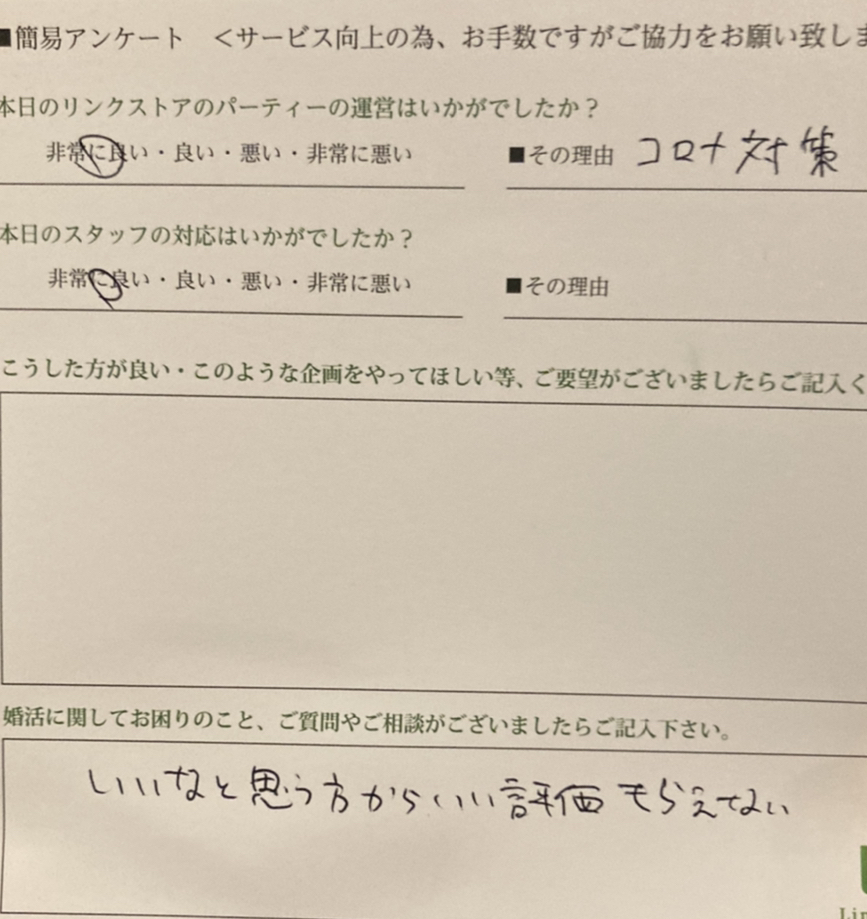 ■簡易アンケート ＜サービス向上の為、お手数ですがご協力をお願い致しま
本日のリンクストアのパーティーの運営はいかがでしたか？
非常に良い・良い・悪い・非常に悪い ■その理由 コロナ対策
本日のスタッフの対応はいかがでしたか？
非常に良い・良い・悪い・非常に悪い ■その理由
こうした方が良い・このような企画をやってほしい等、ご要望がございましたらご記入く
婚活に関してお困りのこと、ご質問やご相談がございましたらご記入下さい。
いいなと思う方からいい評価もらえてない